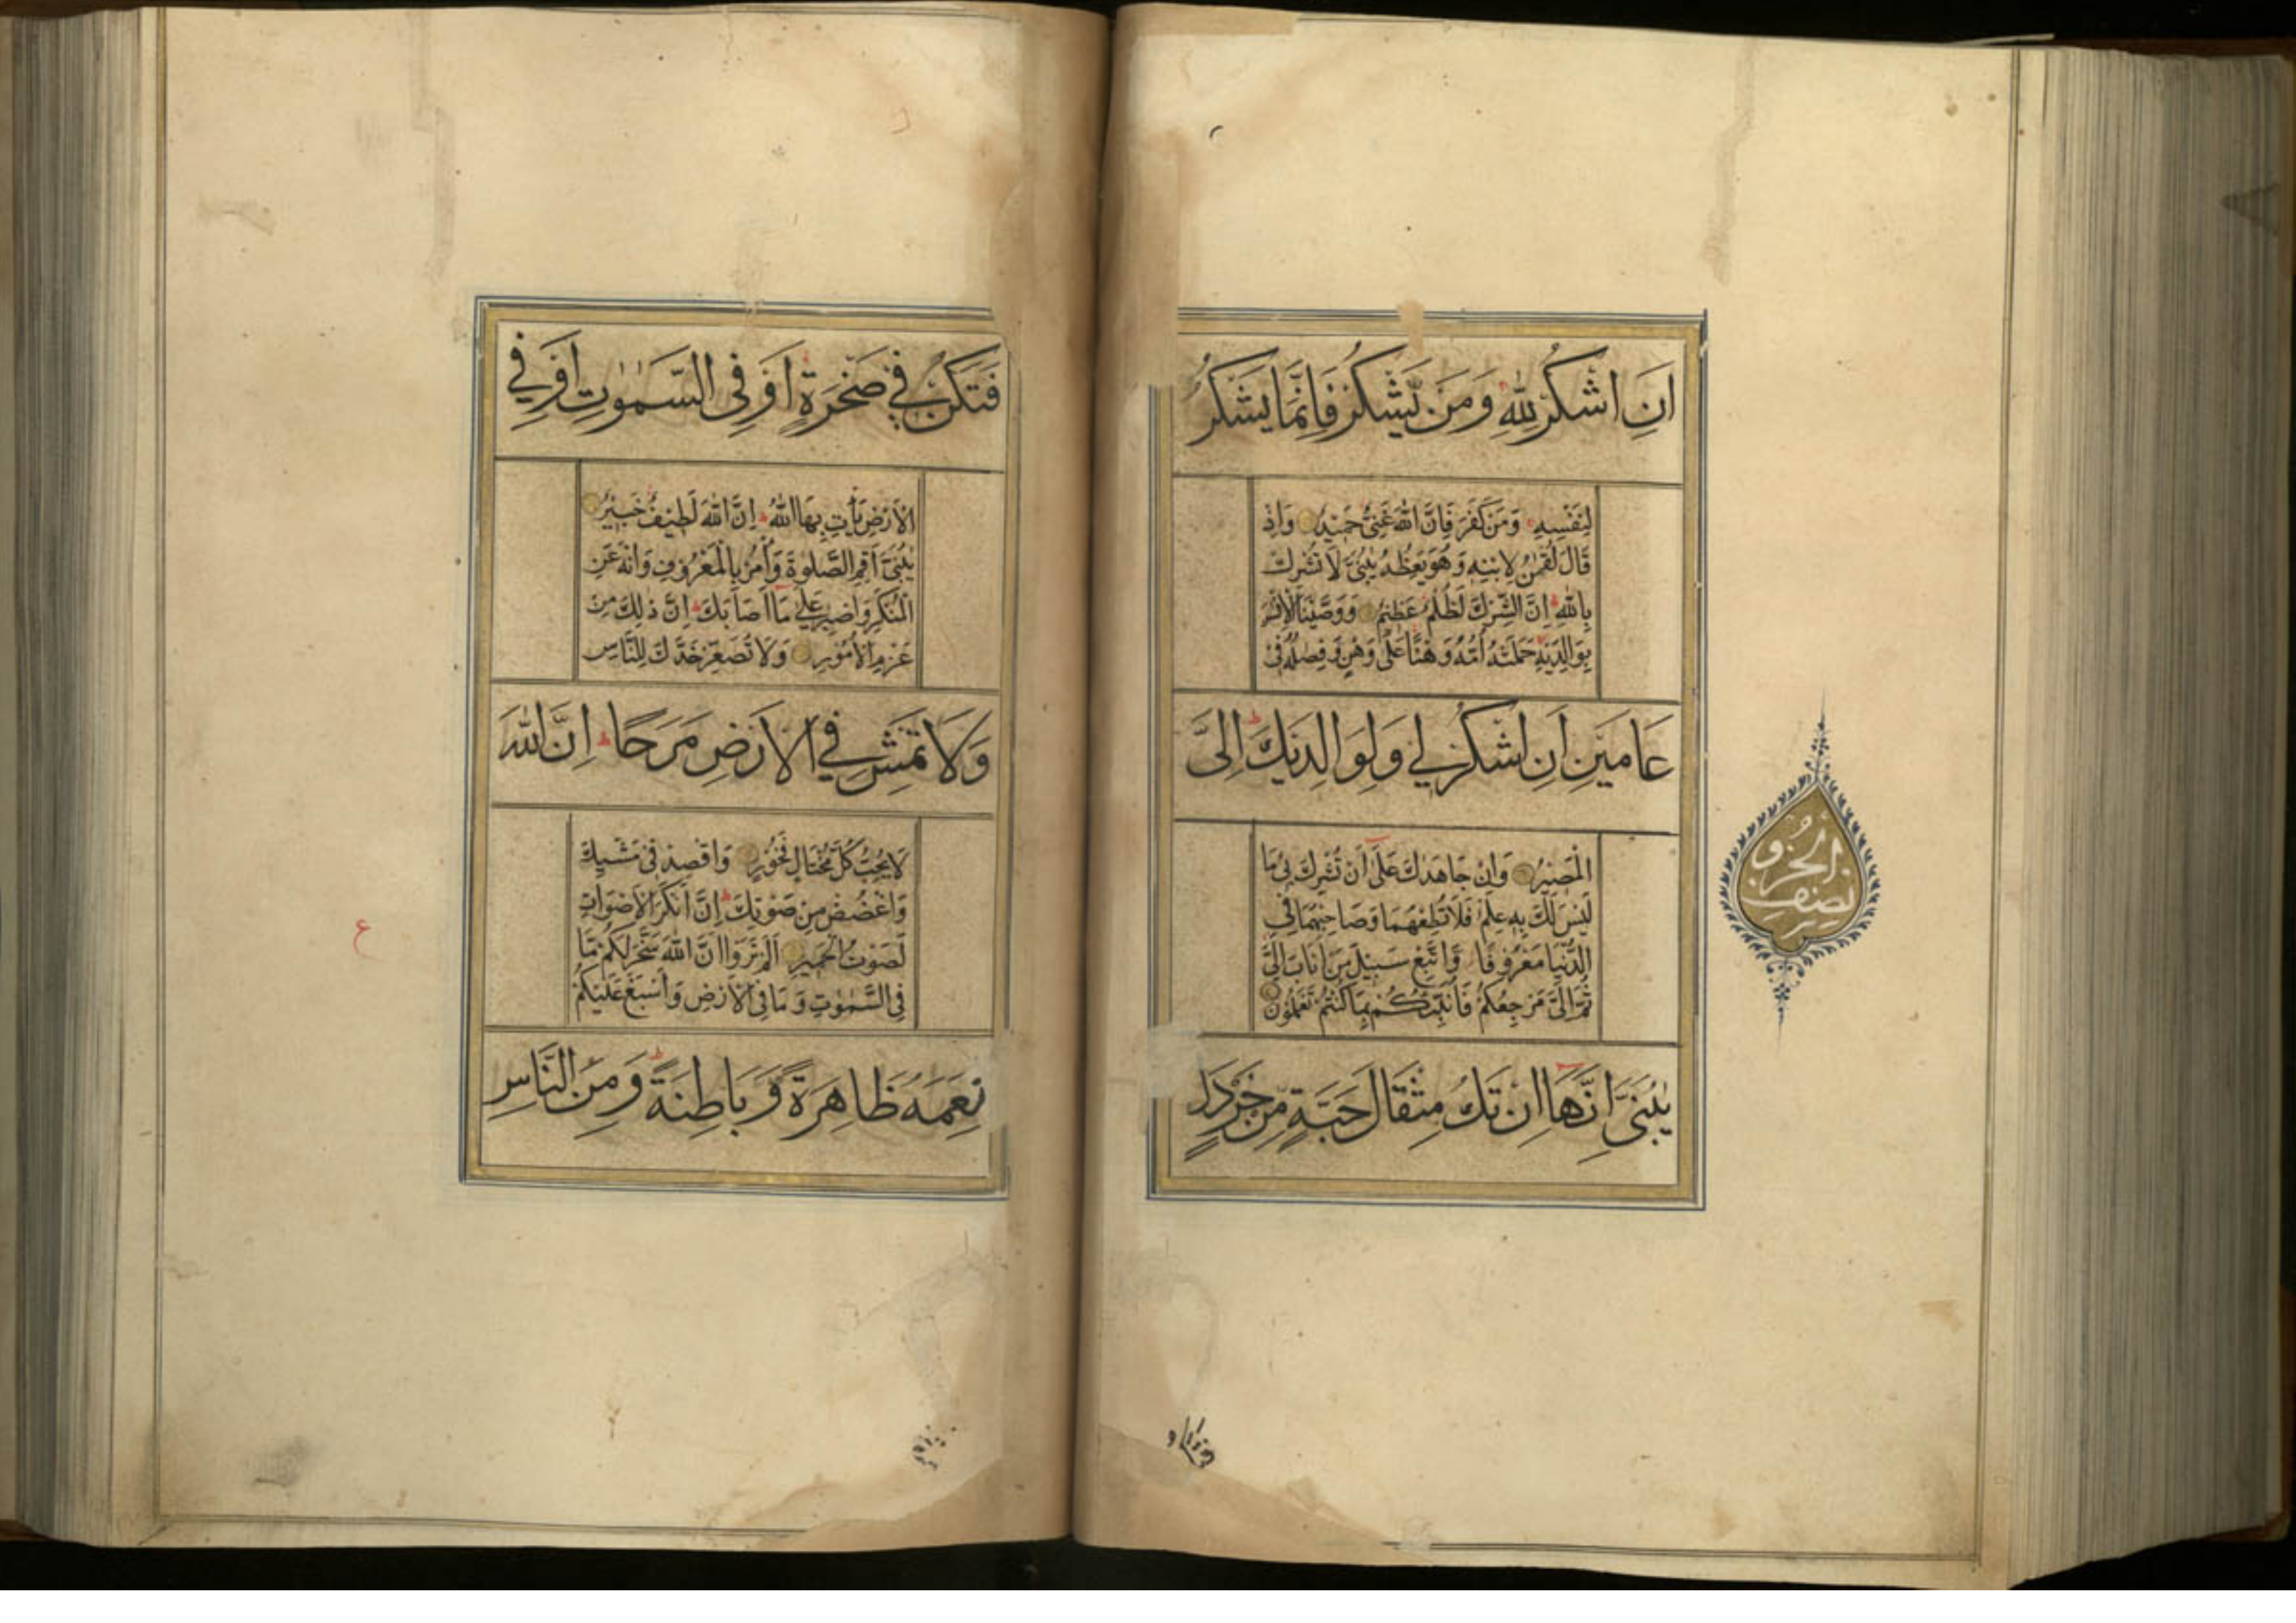 اَنِ اشْكُرْ لِلّٰهِ وَمَنْ يَّشْكُرْ فَاِنَّمَا يَشْكُرُ
لِنَفْسِهٖ وَمَنْ كَفَرَ فَاِنَّ اللّٰهَ غَنِىٌّ حَمِيْدٌ وَاِذْ
قَالَ لُقْمٰنُ لِابْنِهٖ وَهُوَ يَعِظُهٗ يٰبُنَىَّ لَا تُشْرِكْ
بِاللّٰهِ ط اِنَّ الشِّرْكَ لَظُلْمٌ عَظِيْمٌ وَوَصَّيْنَا الْاِنْسَ
بِوَالِدَيْهِ حَمَلَتْهُ اُمُّهٗ وَهْنًا عَلٰى وَهْنٍ وَّفِصٰلُهٗ فِىْ
عَامَيْنِ اَنِ اشْكُرْ لِىْ وَلِوَالِدَيْكَ ط اِلَىَّ
الْمَصِيْرُ وَاِنْ جَاهَدٰكَ عَلٰى اَنْ تُشْرِكَ بِىْ مَا
لَيْسَ لَكَ بِهٖ عِلْمٌ فَلَا تُطِعْهُمَا وَصَاحِبْهُمَا فِى
الدُّنْيَا مَعْرُوْفًا وَّاتَّبِعْ سَبِيْلَ مَنْ اَنَابَ اِلَىَّ
ثُمَّ اِلَىَّ مَرْجِعُكُمْ فَاُنَبِّئُكُمْ بِمَا كُنْتُمْ تَعْمَلُوْنَ
يٰبُنَىَّ اِنَّهَا اِنْ تَكُ مِثْقَالَ حَبَّةٍ مِّنْ خَرْدَلٍ
نصف
الحزب
فَتَكُنْ فِىْ صَخْرَةٍ اَوْ فِى السَّمٰوٰتِ اَوْ فِى
الْاَرْضِ يَأْتِ بِهَا اللّٰهُ ط اِنَّ اللّٰهَ لَطِيْفٌ خَبِيْرٌ
يٰبُنَىَّ اَقِمِ الصَّلٰوةَ وَأْمُرْ بِالْمَعْرُوْفِ وَانْهَ عَنِ
الْمُنْكَرِ وَاصْبِرْ عَلٰى مَا اَصَابَكَ ط اِنَّ ذٰلِكَ مِنْ
عَزْمِ الْاُمُوْرِ وَلَا تُصَعِّرْ خَدَّكَ لِلنَّاسِ
وَلَا تَمْشِ فِى الْاَرْضِ مَرَحًا ط اِنَّ اللّٰهَ
لَا يُحِبُّ كُلَّ مُخْتَالٍ فَخُوْرٍ وَاقْصِدْ فِىْ مَشْيِكَ
وَاغْضُضْ مِنْ صَوْتِكَ ط اِنَّ اَنْكَرَ الْاَصْوَاتِ
لَصَوْتُ الْحَمِيْرِ اَلَمْ تَرَوْا اَنَّ اللّٰهَ سَخَّرَ لَكُمْ مَّا
فِى السَّمٰوٰتِ وَمَا فِى الْاَرْضِ وَاَسْبَغَ عَلَيْكُمْ
نِعَمَهٗ ظَاهِرَةً وَّبَاطِنَةً ط وَمِنَ النَّاسِ
ع